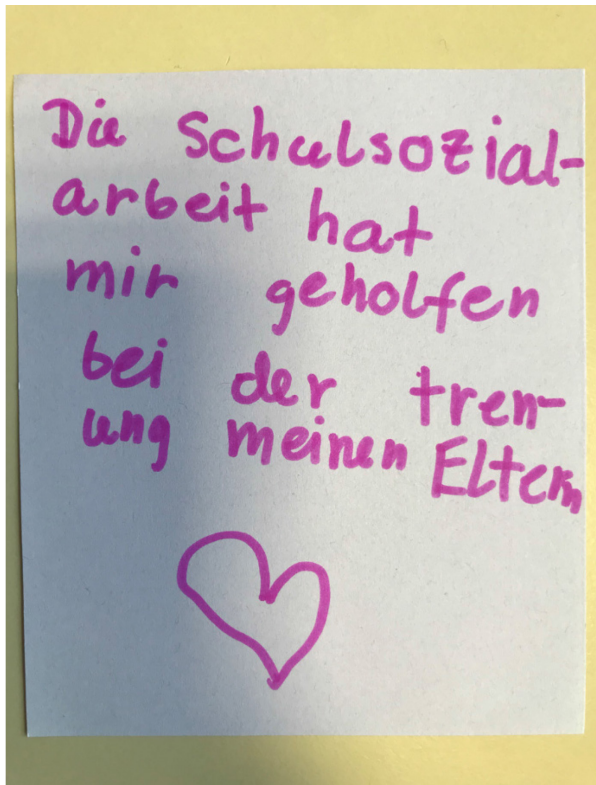 Die Schulsozial-
arbeit hat
mir geholfen
bei der tren-
ung meinen Eltern